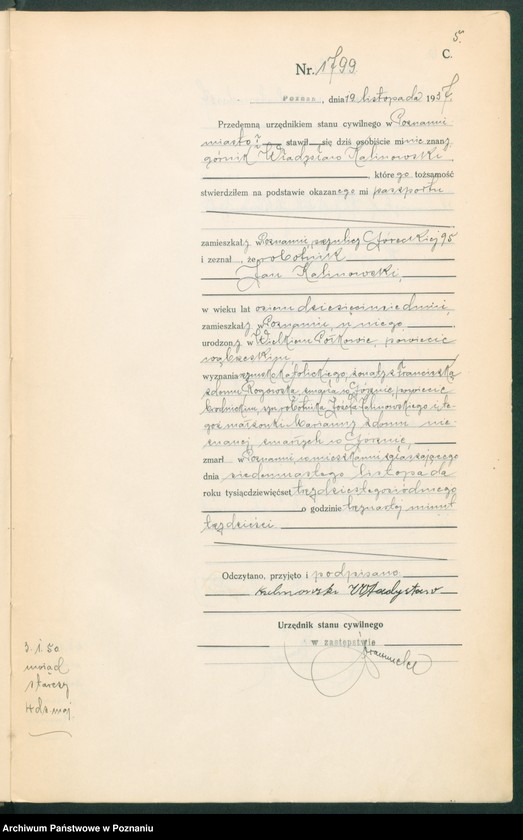 5.
C.
Nr. 1799
POZNAŃ, dnia 19 listopada 1937.
Przedemną urzędnikiem stanu cywilnego w Poznaniu
miasto stawił się dziś osobiście mi nie znany
górnik Władysław Kalinowski
, którego tożsamość
stwierdziłem na podstawie okazanego mi paszportu
zamieszkały w Poznaniu, przy ulicy Góreckiej 95
i zeznał, że robotnik
Jan Kalinowski,
w wieku lat osiem dziesięciu siedmiu,
zamieszkały w Poznaniu, u niego,
urodzony w Wielkiem Półkowie, powiecie
wąbrzeskim,
wyznania rzymsko katolickiego, żonaty z Franciszką
z domu Rogowską, zmarłą w Górznie, powiecie
brodnickim, syn robotnika Józefa Kalinowskiego i te-
goż małżonki Marianny z domu nie-
znanej, zmarłych w Górznie,
zmarł w Poznaniu, w mieszkaniu zgłaszającego
dnia siedemnastego listopada
roku tysiącdziewięćset trzydziestego siódmego
o godzinie trzynastej minut
trzydzieści
Odczytano, przyjęto i podpisano
Kalinowski Władysław
Urzędnik stanu cywilnego
w zastępstwie
3. I. 50
uwiąd
starczy
Archiwum Państwowe w Poznaniu